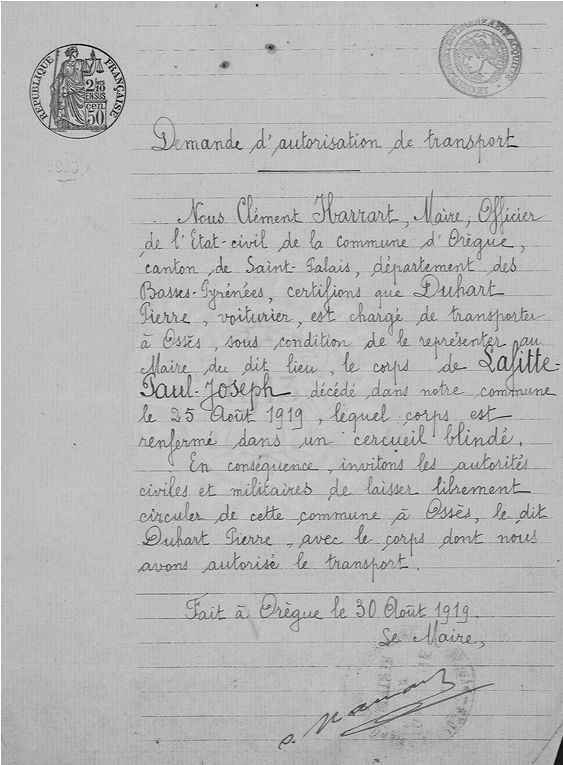 RÉPUBLIQUE FRANÇAISE
2/10
EN SUS
50
cen.
Demande d'autorisation de transport
Nous Clément Harrart, Maire, Officier
de l'Etat-civil de la commune d'Orègue,
canton de Saint-Palais, département des
Basses-Pyrénées, certifions que Duhart
Pierre, voiturier, est chargé de transporter
à Ossès, sous condition de le représenter au
Maire du dit lieu, le corps de Lafitte-
Paul-Joseph décédé dans notre commune
le 25 Août 1919, lequel corps est
renfermé dans un cercueil blindé.
En conséquence, invitons les autorités
civiles et militaires de laisser librement
circuler de cette commune à Ossès, le dit
Duhart Pierre, avec le corps dont nous
avons autorisé le transport.
Fait à Orègue le 30 Août 1919.
Le Maire,